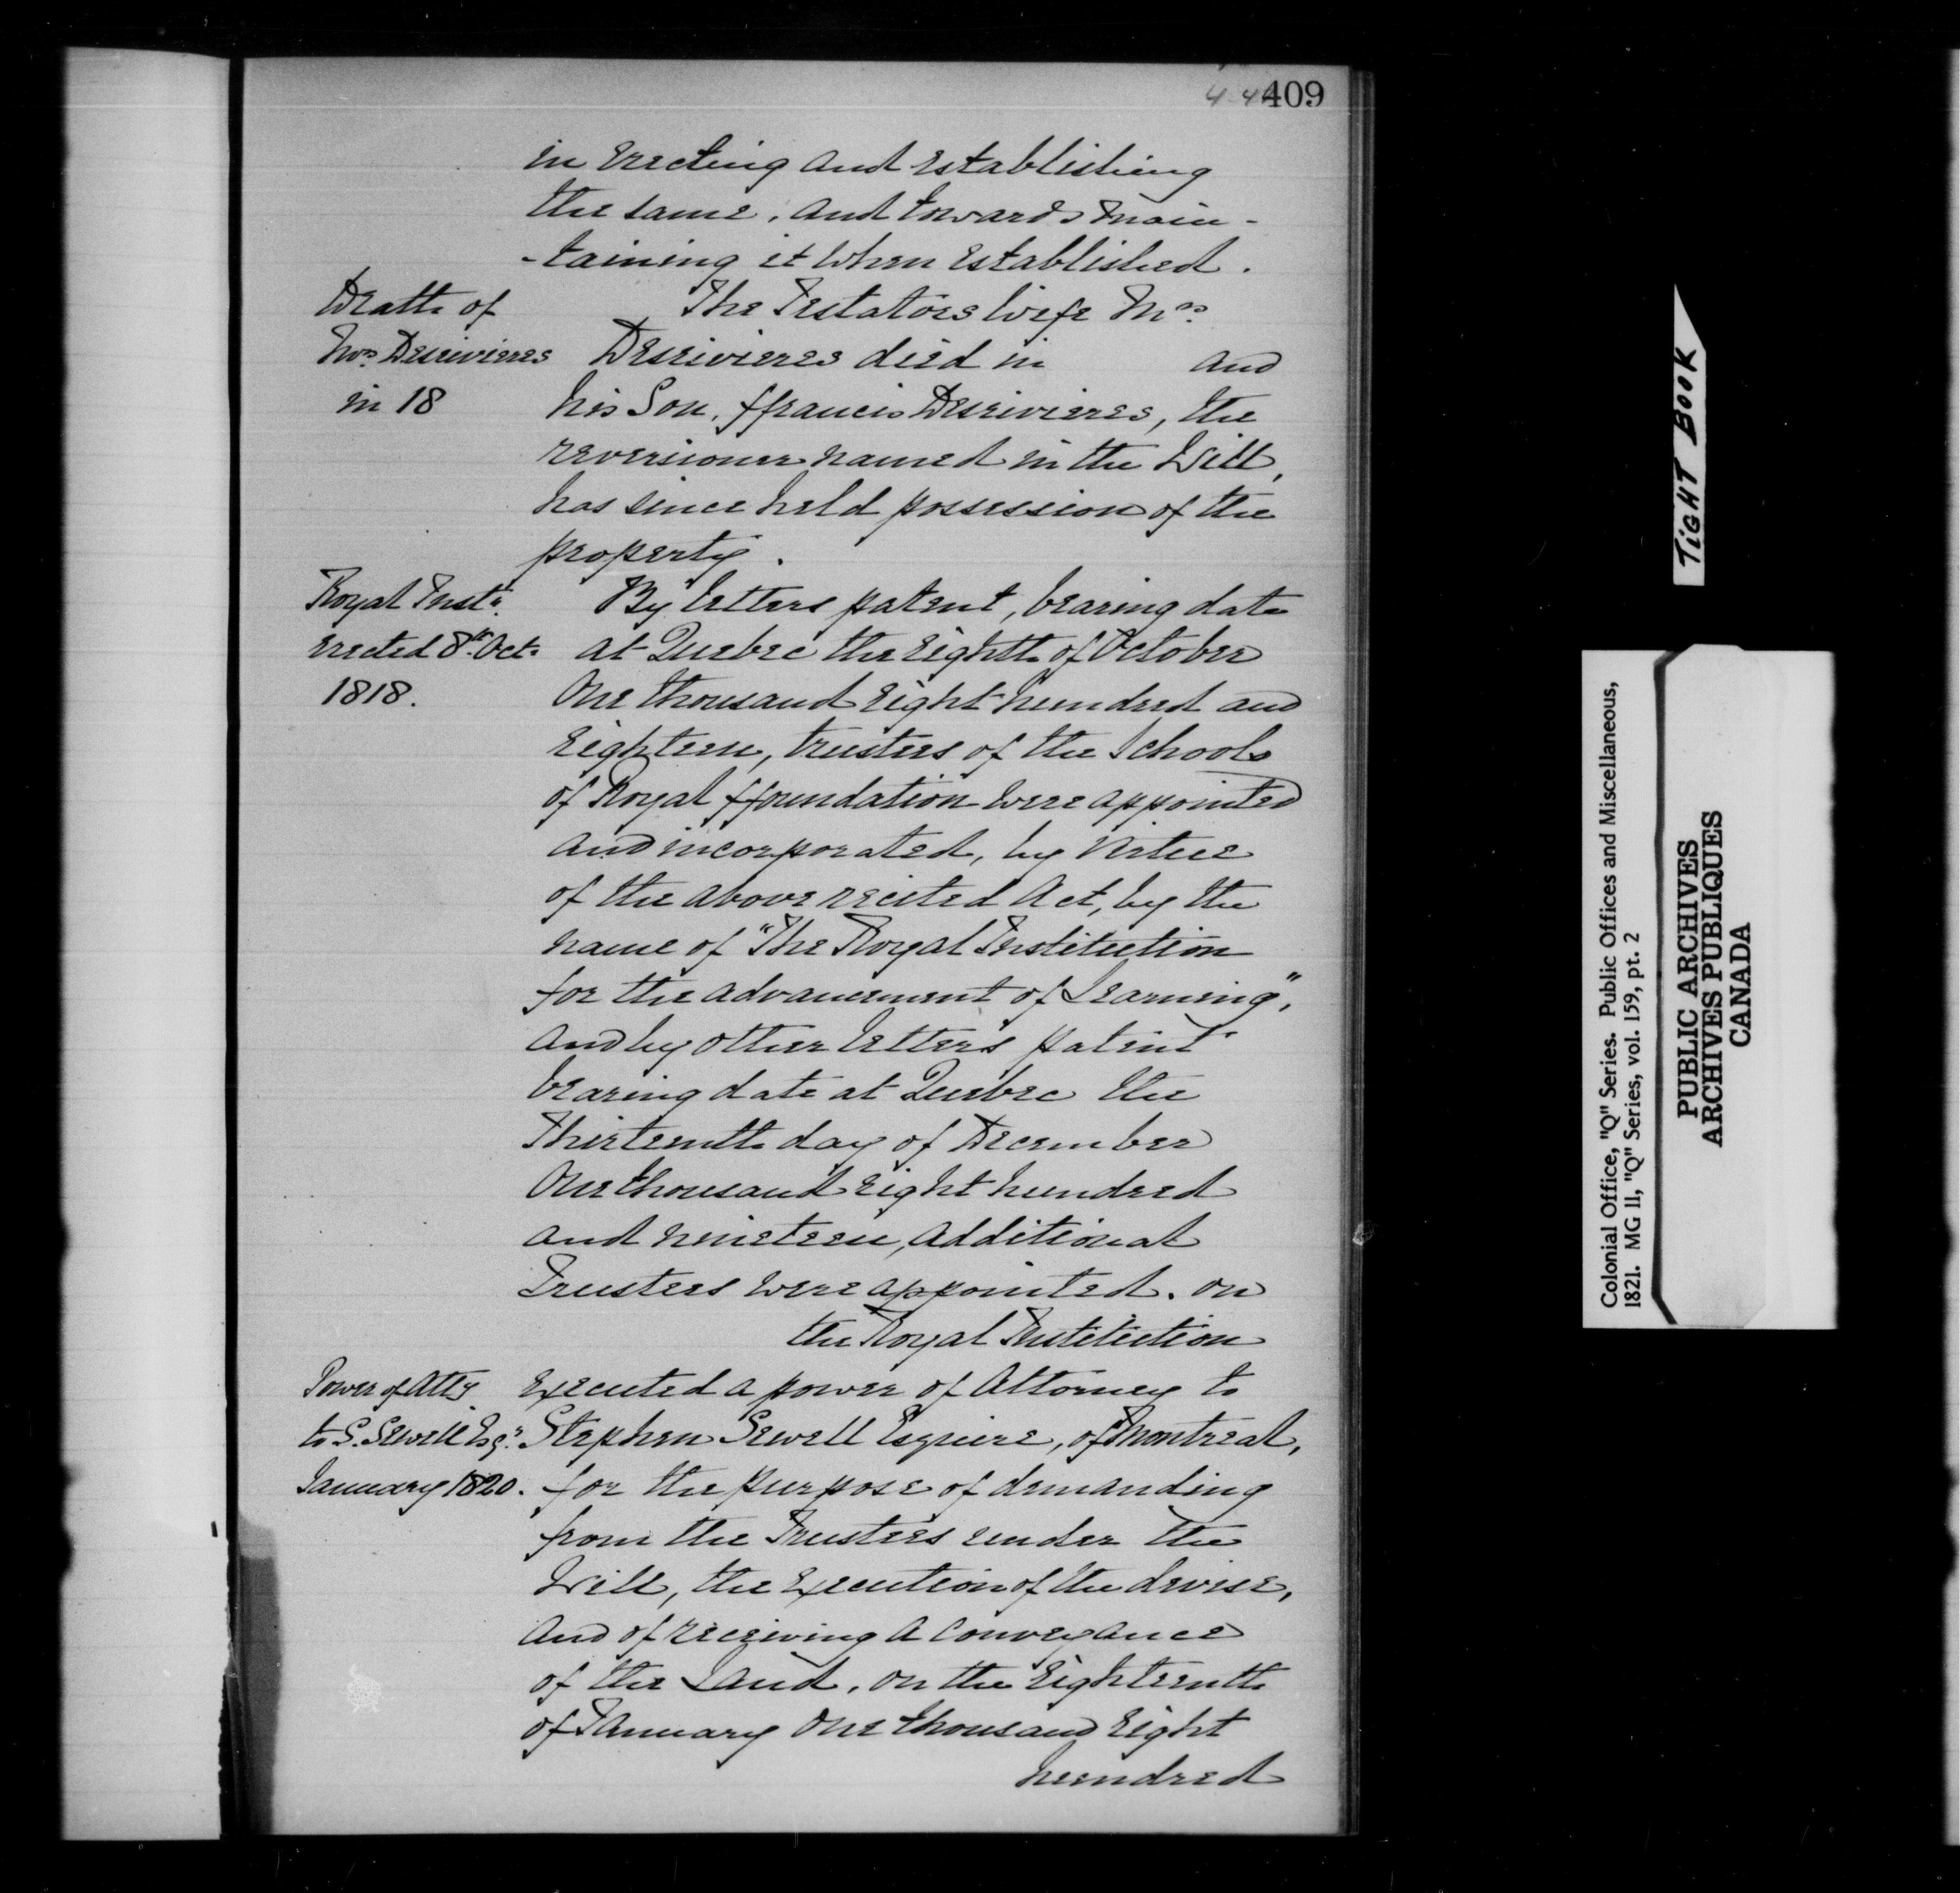 409
in erecting and establishing
the same, and towards main-
-taining it when established.
Death of
Mrs Desrivieres
in 18
The Testators wife Mrs
Desrivieres died in and
his Son, ffrancis Desrivieres, the
reversioner named in the Will,
has since held possession of the
property.
Royal Instn
erected 8th Oct.
1818.
By letters patent, bearing date
at Quebec the eighth of October
One thousand eight hundred and
eighteen, trustees of the Schools
of Royal ffoundation were appointed
and incorporated, by virtue
of the above recited Act, by the
name of "The Royal Institution
for the advancement of Learning",
and by other letters patent
bearing date at Quebec the
Thirteenth day of December
One thousand eight hundred
and nineteen, additional
Trustees were appointed. on
the Royal Institution
Power of Atty
to S. Sewell Esqr.
January 1820.
executed a power of Attorney to
Stephen Sewell Esquire, of Montreal,
for the purpose of demanding
from the Trustees under the
Will, the execution of the devise,
and of receiving a conveyance
of the Land, on the eighteenth
of January one thousand eight
hundred
TIGHT BOOK
Colonial Office, "Q" Series. Public Offices and Miscellaneous,
1821. MG 11, "Q" Series, vol. 159, pt. 2
PUBLIC ARCHIVES
ARCHIVES PUBLIQUES
CANADA